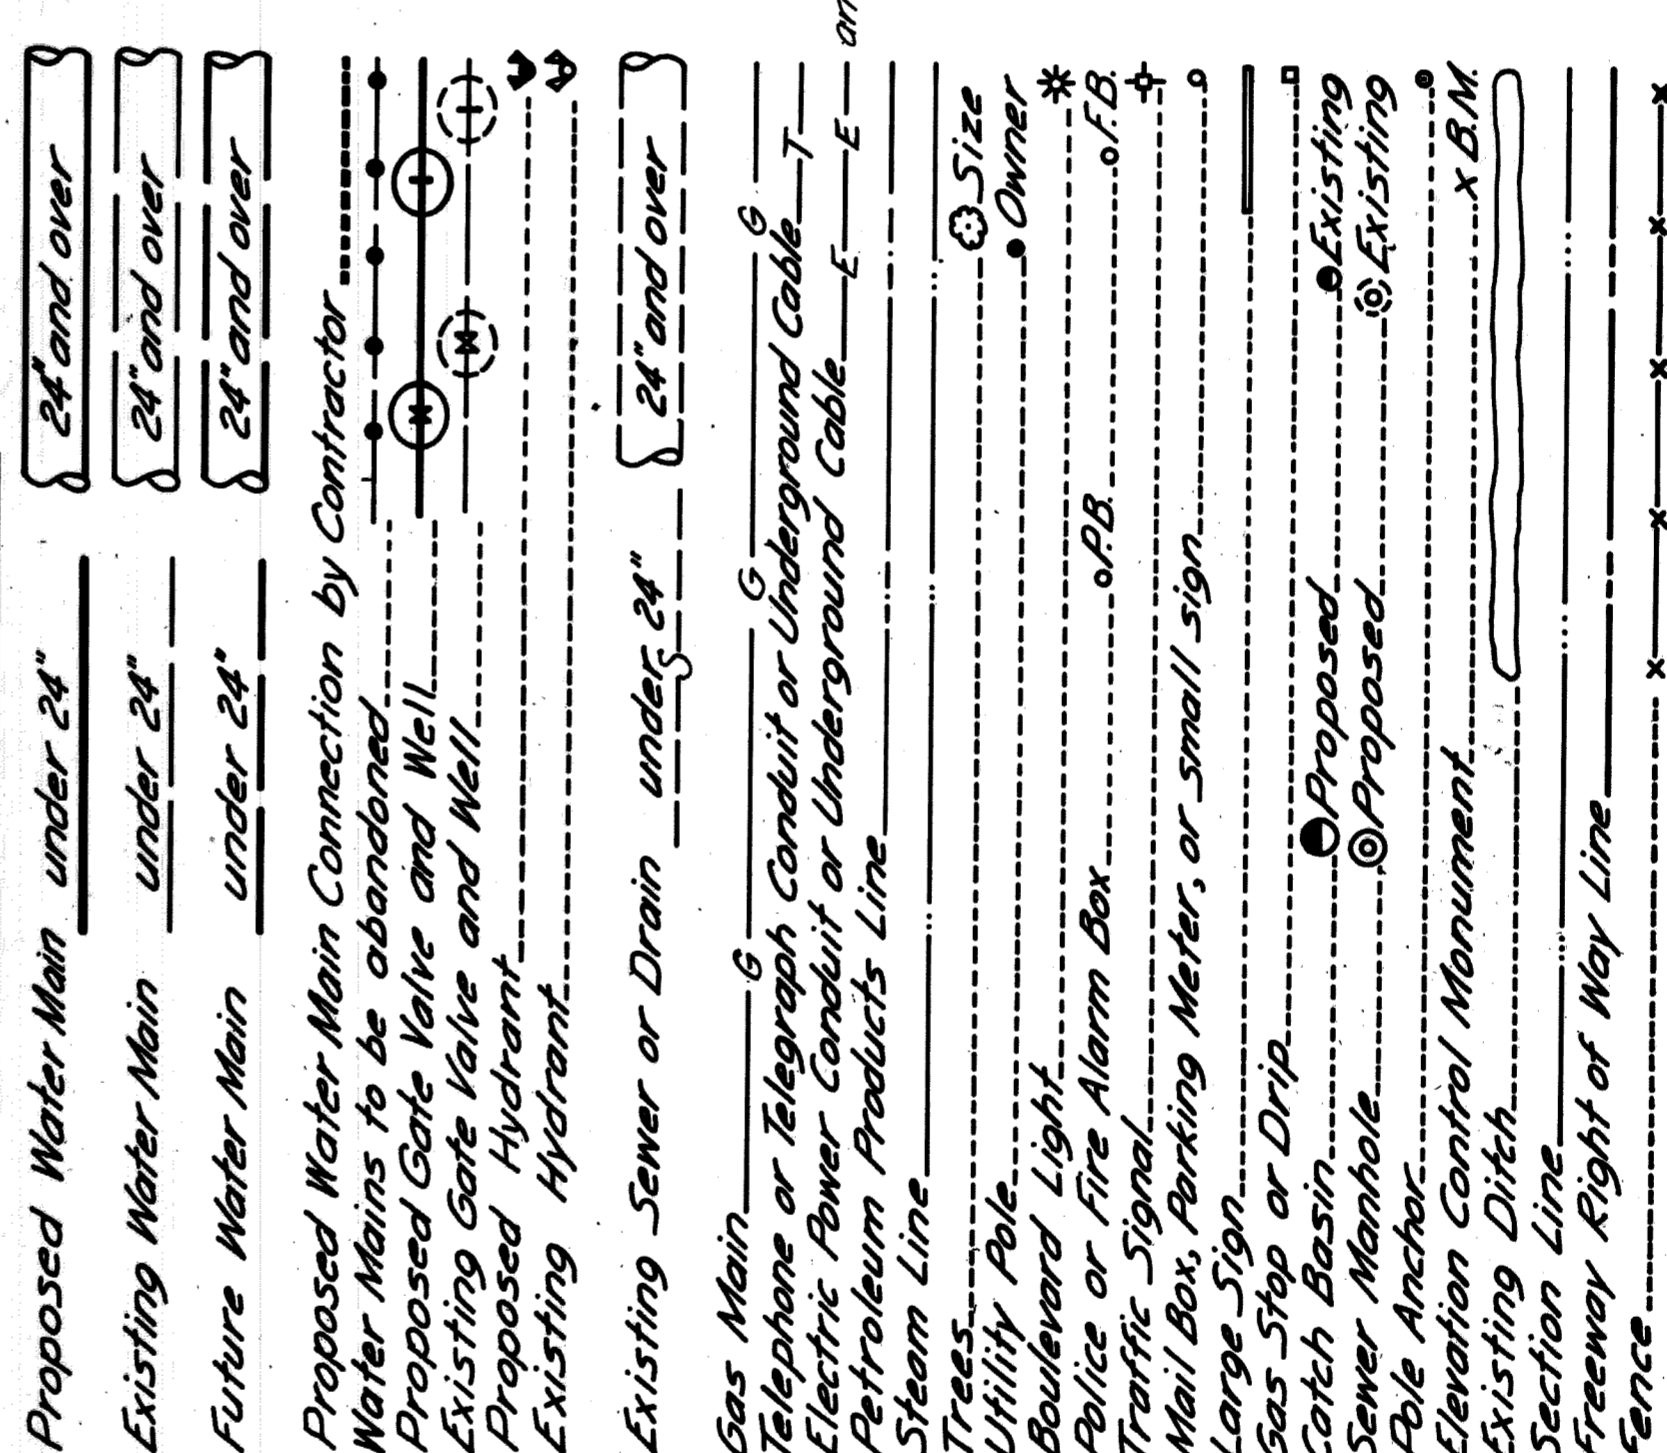 Proposed Water Main under 24" 24" and over
Existing Water Main under 24" 24" and over
Future Water Main under 24" 24" and over
Proposed Water Main Connection by Contractor
Water Mains to be abandoned
Proposed Gate Valve and Well
Existing Gate Valve and Well
Proposed Hydrant
Existing Hydrant
Existing Sewer or Drain under 24" 24" and over
S
Gas Main G G G
Telephone or Telegraph Conduit or Underground Cable T
Electric Power Conduit or Underground Cable E E
Petroleum Products Line
Steam Line
Trees Size
Utility Pole Owner
Boulevard Light
Police or Fire Alarm Box P.B. F.B.
Traffic Signal
Mail Box, Parking Meter, or small sign
Large Sign
Gas Stop or Drip
Catch Basin Proposed Existing
Sewer Manhole Proposed Existing
Pole Anchor
Elevation Control Monument x B.M.
Existing Ditch
Section Line
Freeway Right of Way Line
Fence x x x x x